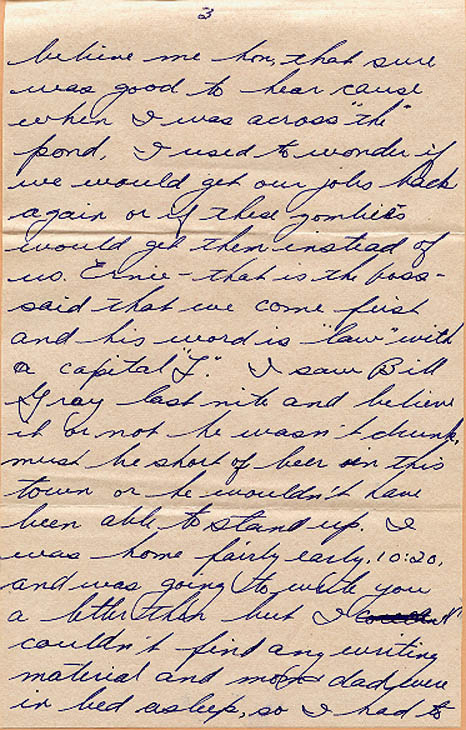 3
believe me hon, that sure
was good to hear cause
when I was across "the"
pond, I used to wonder if
we would get our jobs back
again or if these zombies
would get them instead of
us. Ernie - that is the boss -
said that we come first
and his word is "law" with
a capital "L". I saw Bill
Gray last nite and believe
it or not he wasn't drunk,
must be short of beer in this
town or he wouldn't have
been able to stand up. I
was home fairly early, 10:20,
and was going to write you
a letter then but I
couldn't find any writing
material and mom & dad were
in bed asleep, so I had to